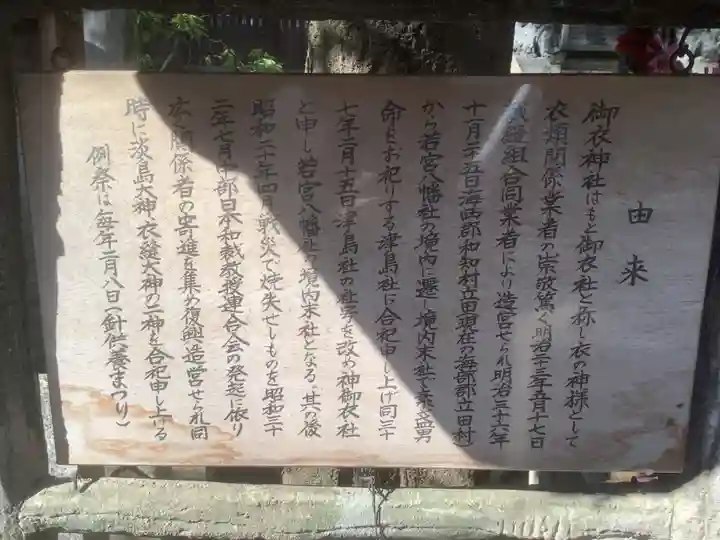 由来
御衣神社はもと御衣社と称し衣の神様として
衣類関係業者の崇敬篤く明治二十三年五月十七日
裁縫組合同業者により造営せられ明治三十六年
十一月二十五日海西郡和知村立田現在の海部郡立田村
から若宮八幡社の境内に遷し境内末社で素盞男
命をお祀りする津島社に合祀申し上げ同三十
七年二月十五日津島社の社号を改め神御衣社
と申し若宮八幡社の境内末社となる 其の後
昭和二十年四月戦災で焼失せしものを昭和三十
二年七月中部日本和裁教授連合会の発起に依り
広く関係者の寄進を集め復興造営せられ同
時に淡島大神 衣縫大神の二神を合祀申し上げる
例祭は毎年二月八日（針供養まつり）